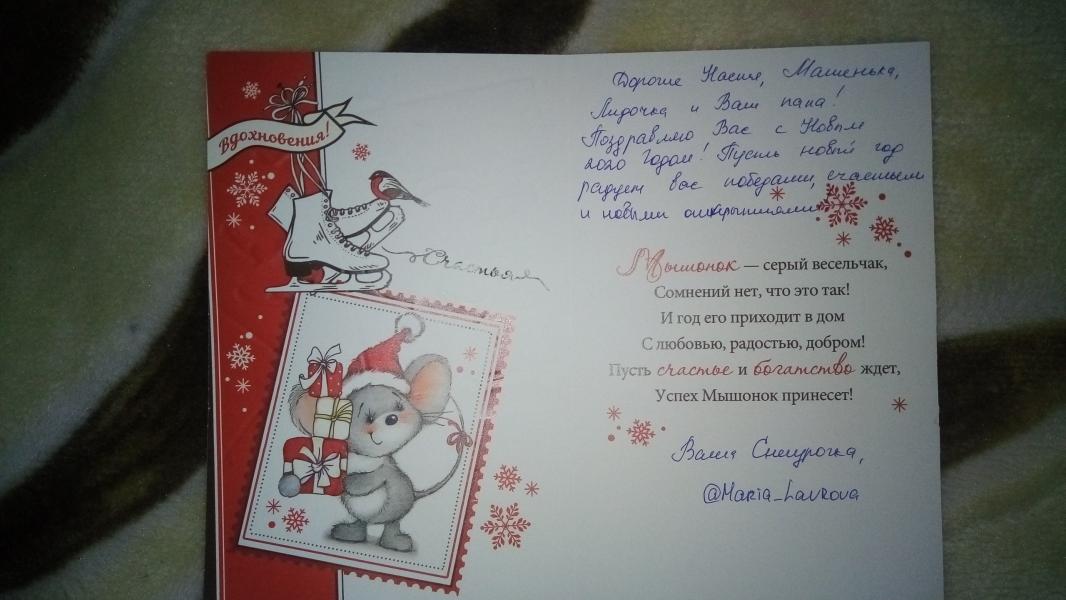 Вдохновения!
Счастья
Дорогие Настя, Машенька,
Лидочка и Ваш папа!
Поздравляю Вас с Новым
2020 Годом! Пусть новый год
радует вас победами, счастьем
и новыми открытиями
Мышонок — серый весельчак,
Сомнений нет, что это так!
И год его приходит в дом
С любовью, радостью, добром!
Пусть счастье и богатство ждет,
Успех Мышонок принесет!
Ваша Снегурочка,
@Maria_Lavrova